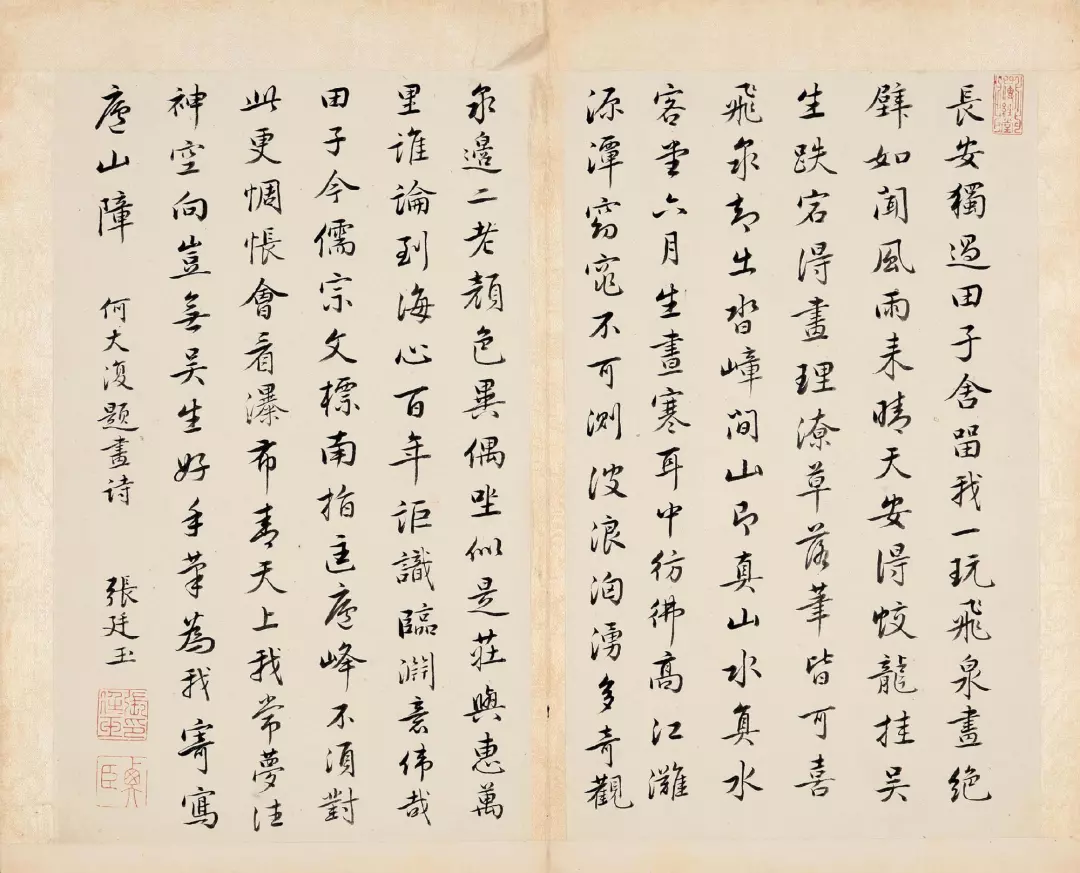 長安獨過田子舍留我一玩飛泉畫絕
壁如聞風雨來晴天安得蛟龍挂吳
生跌宕得畫理潦草落筆皆可喜
飛泉却出沓嶂間山即真山水真水
客堂六月生晝寒耳中彷彿高江灘
源潭窈窕不可測波浪洶湧多奇觀
泉邊二老顏色異偶坐似是莊與惠萬
里誰論到海心百年詎識臨淵意偉哉
田子今儒宗文標南指匡廬峰不須對
此更惆悵會看瀑布青天上我常夢往
神空向豈無吳生好手筆為我寄寫
廬山障 何大復題畫詩 張廷玉
張印廷玉